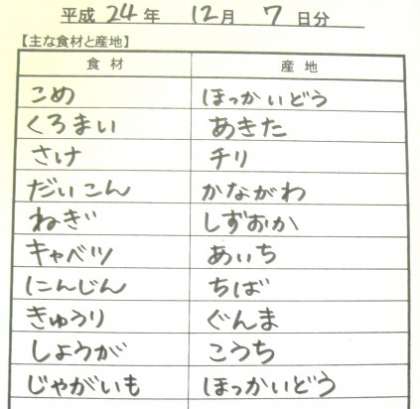 平成 24 年 12 月 7 日分
【主な食材と産地】
食材 産地
こめ ほっかいどう
くろまい あきた
さけ チリ
だいこん かながわ
ねぎ しずおか
キャベツ あいち
にんじん ちば
きゅうり ぐんま
しょうが こうち
じゃがいも ほっかいどう